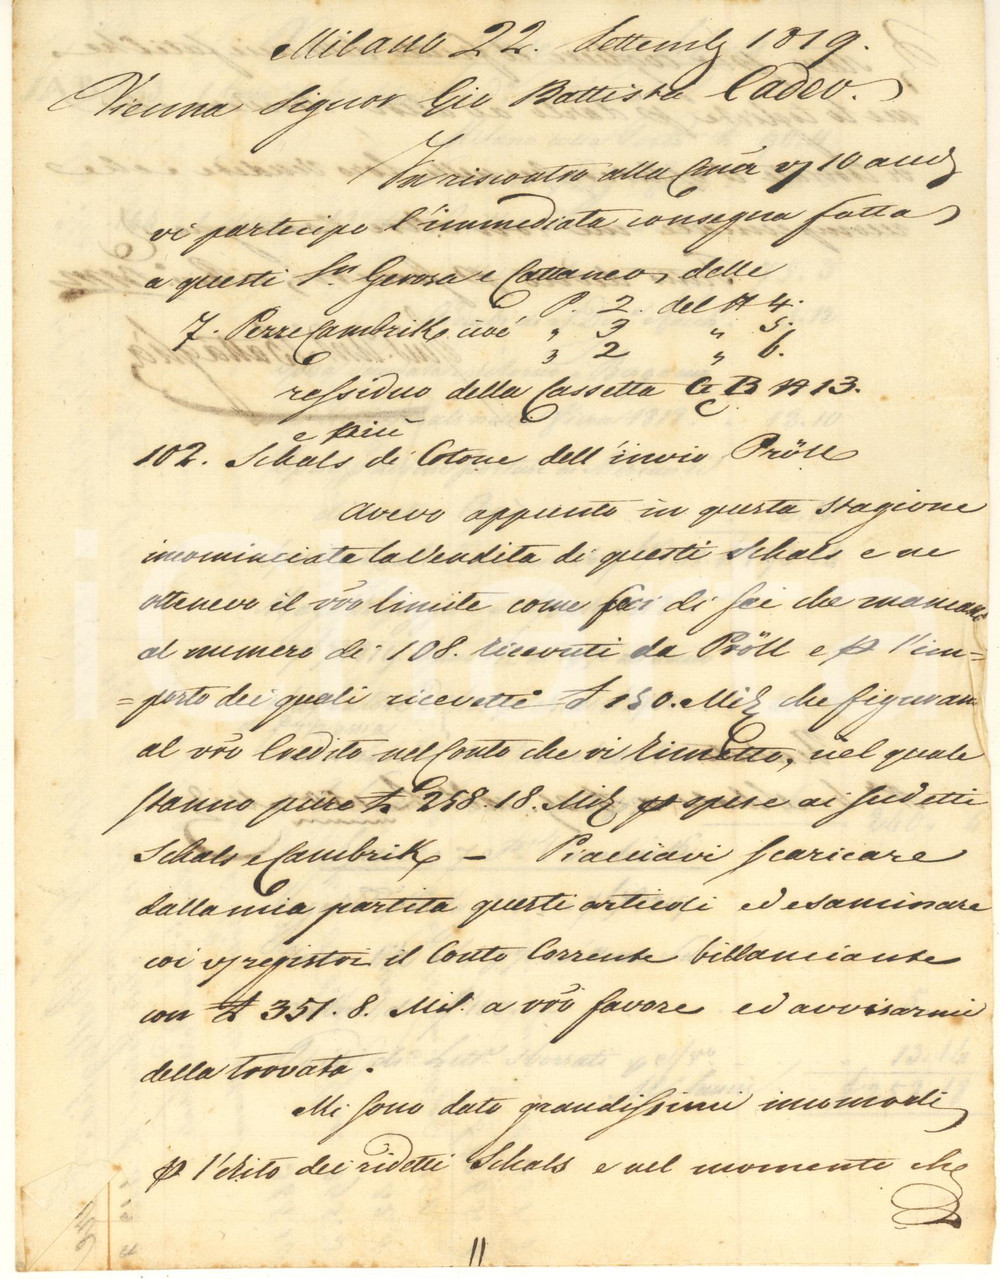 Milano 22. Settemb 1819.
Vienna Signor Gio Battista Cadeo.
In riscontro alla Cara vra 10 and
vi partecipo l'immediata consegna fatta
a questi Sri Gerosa e Cattaneo, delle
P. 2. del N 4.
7. Pezze Cambrik, cioè " 3 " 5.
" 2 " 6.
ressiduo della Cassetta G B N 13.
e più
102. Schals di Cotone dell'invio Pröll
Avevo appunto in questa stagione
incominciata la vendita di questi Schals e ne
ottenevo il vro limite come feci di sei che mancano
al numero di 108. ricevuti da Pröll e p l'im=
=porto dei quali ricevetti £ 150. Mil che figuran
al vro Credito nel Conto che vi rimetto, nel quale
stanno pure £ 258.18. Mil p spese ai sudetti
Schals e Cambrik – Piacciavi scaricare
dalla mia partita questi articoli ed esaminare
coi vri registri il Conto Corrente billanciante
con £ 351.8. Mil. a vro favore ed avvisarmi
della trovata.
Mi sono dato grandissimi incomodi
p l'esito dei ridetti Schals e nel momento che
iCharta